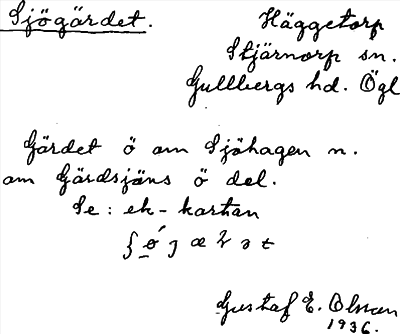 Sjögärdet. Häggetorp
Stjärnorp sn.
Gullbergs hd. Ögl
Gärdet ö om Sjöhagen n.
om Gärdsjöns ö del.
Se: ek-kartan
Gustaf E. Olsson
1936.